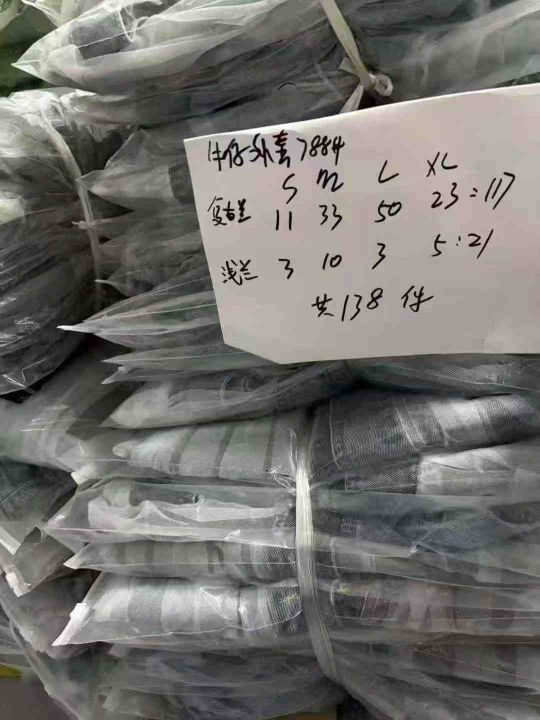 牛仔外套7884
S M L XL
复古兰 11 33 50 23:117
浅兰 3 10 3 5:21
共138件